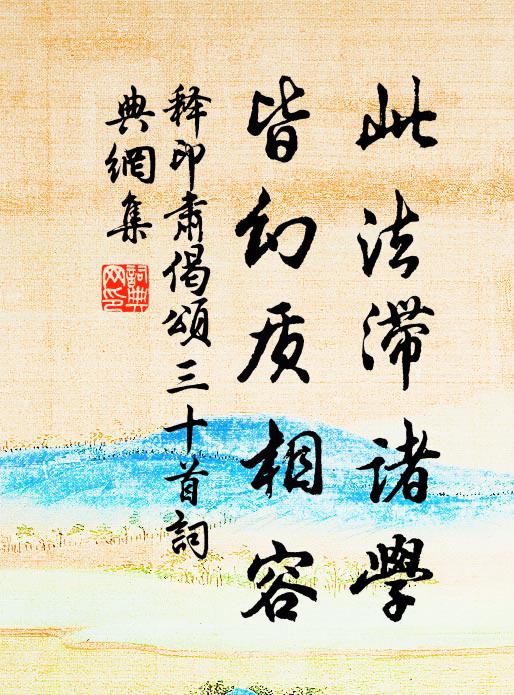 此法滞诸學
皆幻质相容
释印肃偈頌三十首詞
典網集
詞典網印